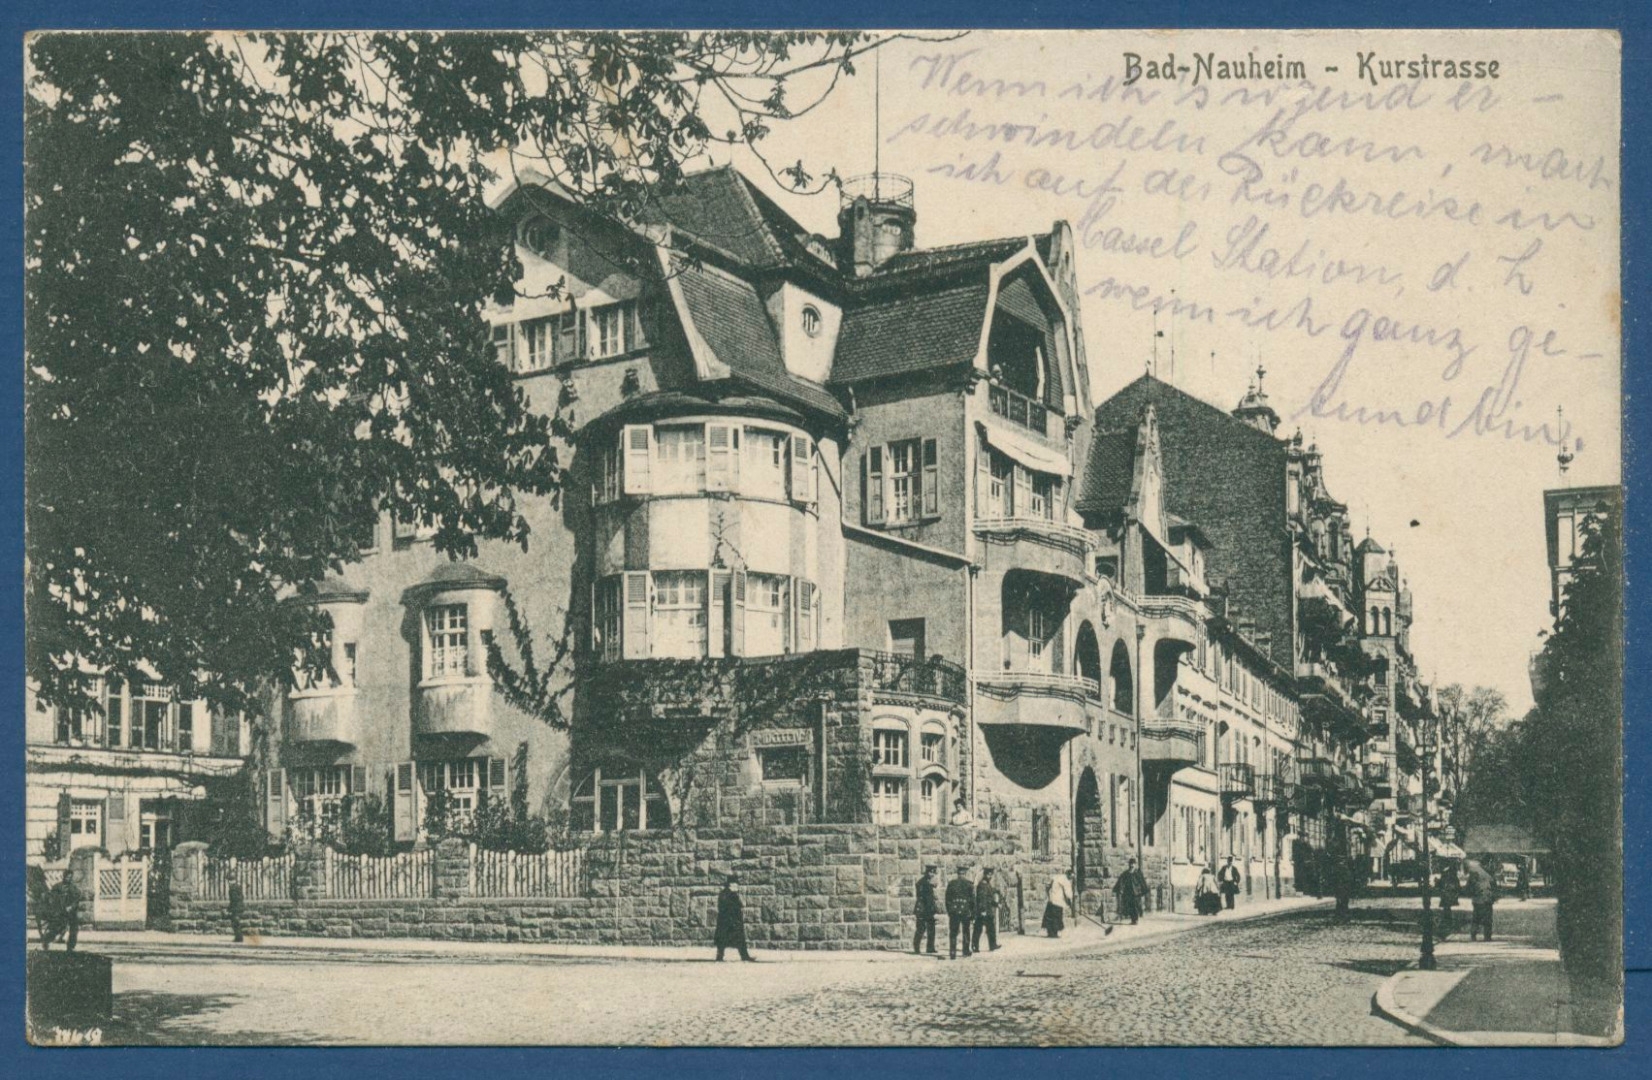 Bad-Nauheim - Kurstrasse
Wenn ich's irgend er-
schwindeln kann, mach
ich auf der Rückreise in
Cassel Station, d. h.
wenn ich ganz ge-
sund bin.